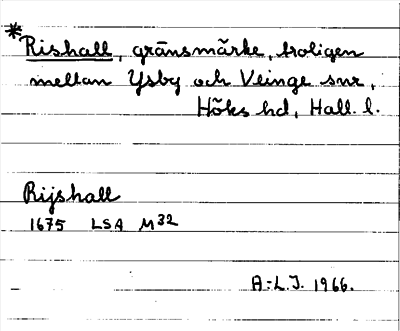 *Rishall, gränsmärke, troligen
mellan Ysby och Veinge snr,
Höks hd, Hall. l.
Rijshall
1675 LSA M32
A-L.J. 1966.